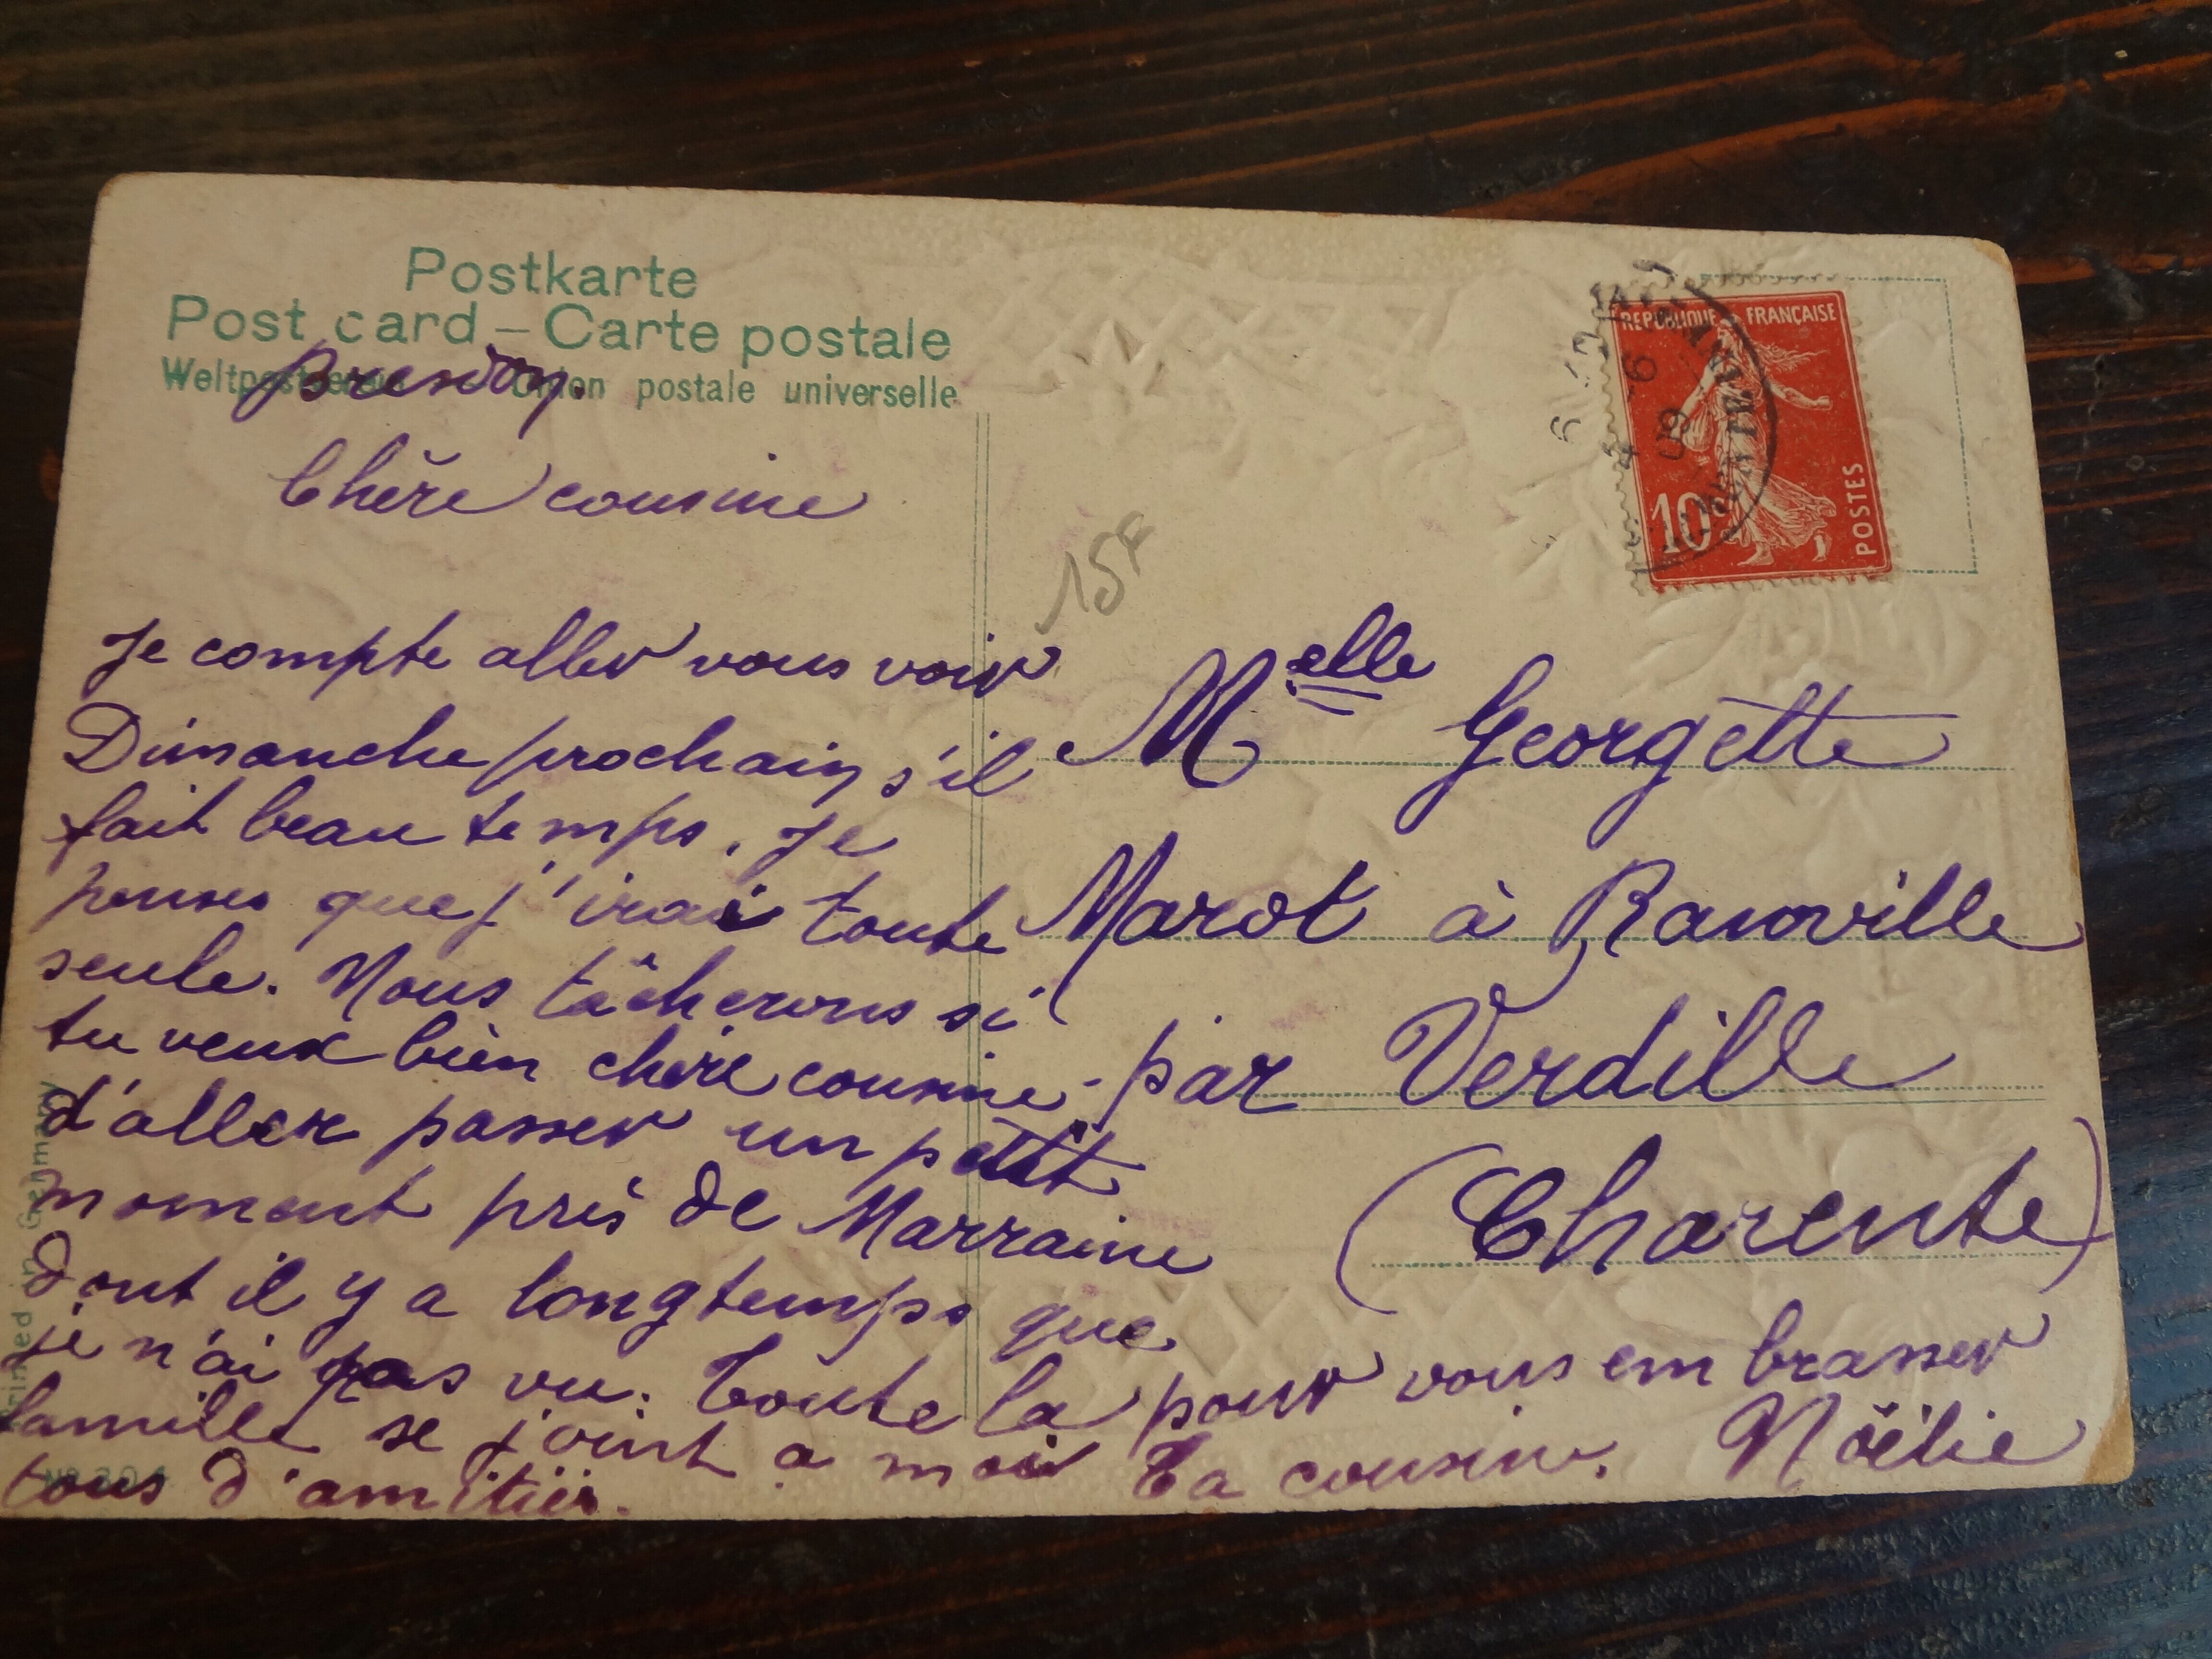 Postkarte
Post card – Carte postale
Weltpostverein Union postale universelle
Bresdon.
Chère cousine
Je compte aller vous voir
Dimanche prochain s'il
fait beau temps. Je
penses que j'irai toute
seule. Nous tâcherons si
tu veux bien chère cousine
d'aller passer un petit
moment près de Marraine
dont il y a longtemps que
je n'ai pas vu. Toute la
famille se joint a moi
tous d'amitiés.
pour vous embrasser
Ta cousine. Nöélie
15F
REPUBLIQUE FRANÇAISE
10
POSTES
Melle Georgette
Marot à Ranville
par Verdille
(Charente)
Printed in Germany